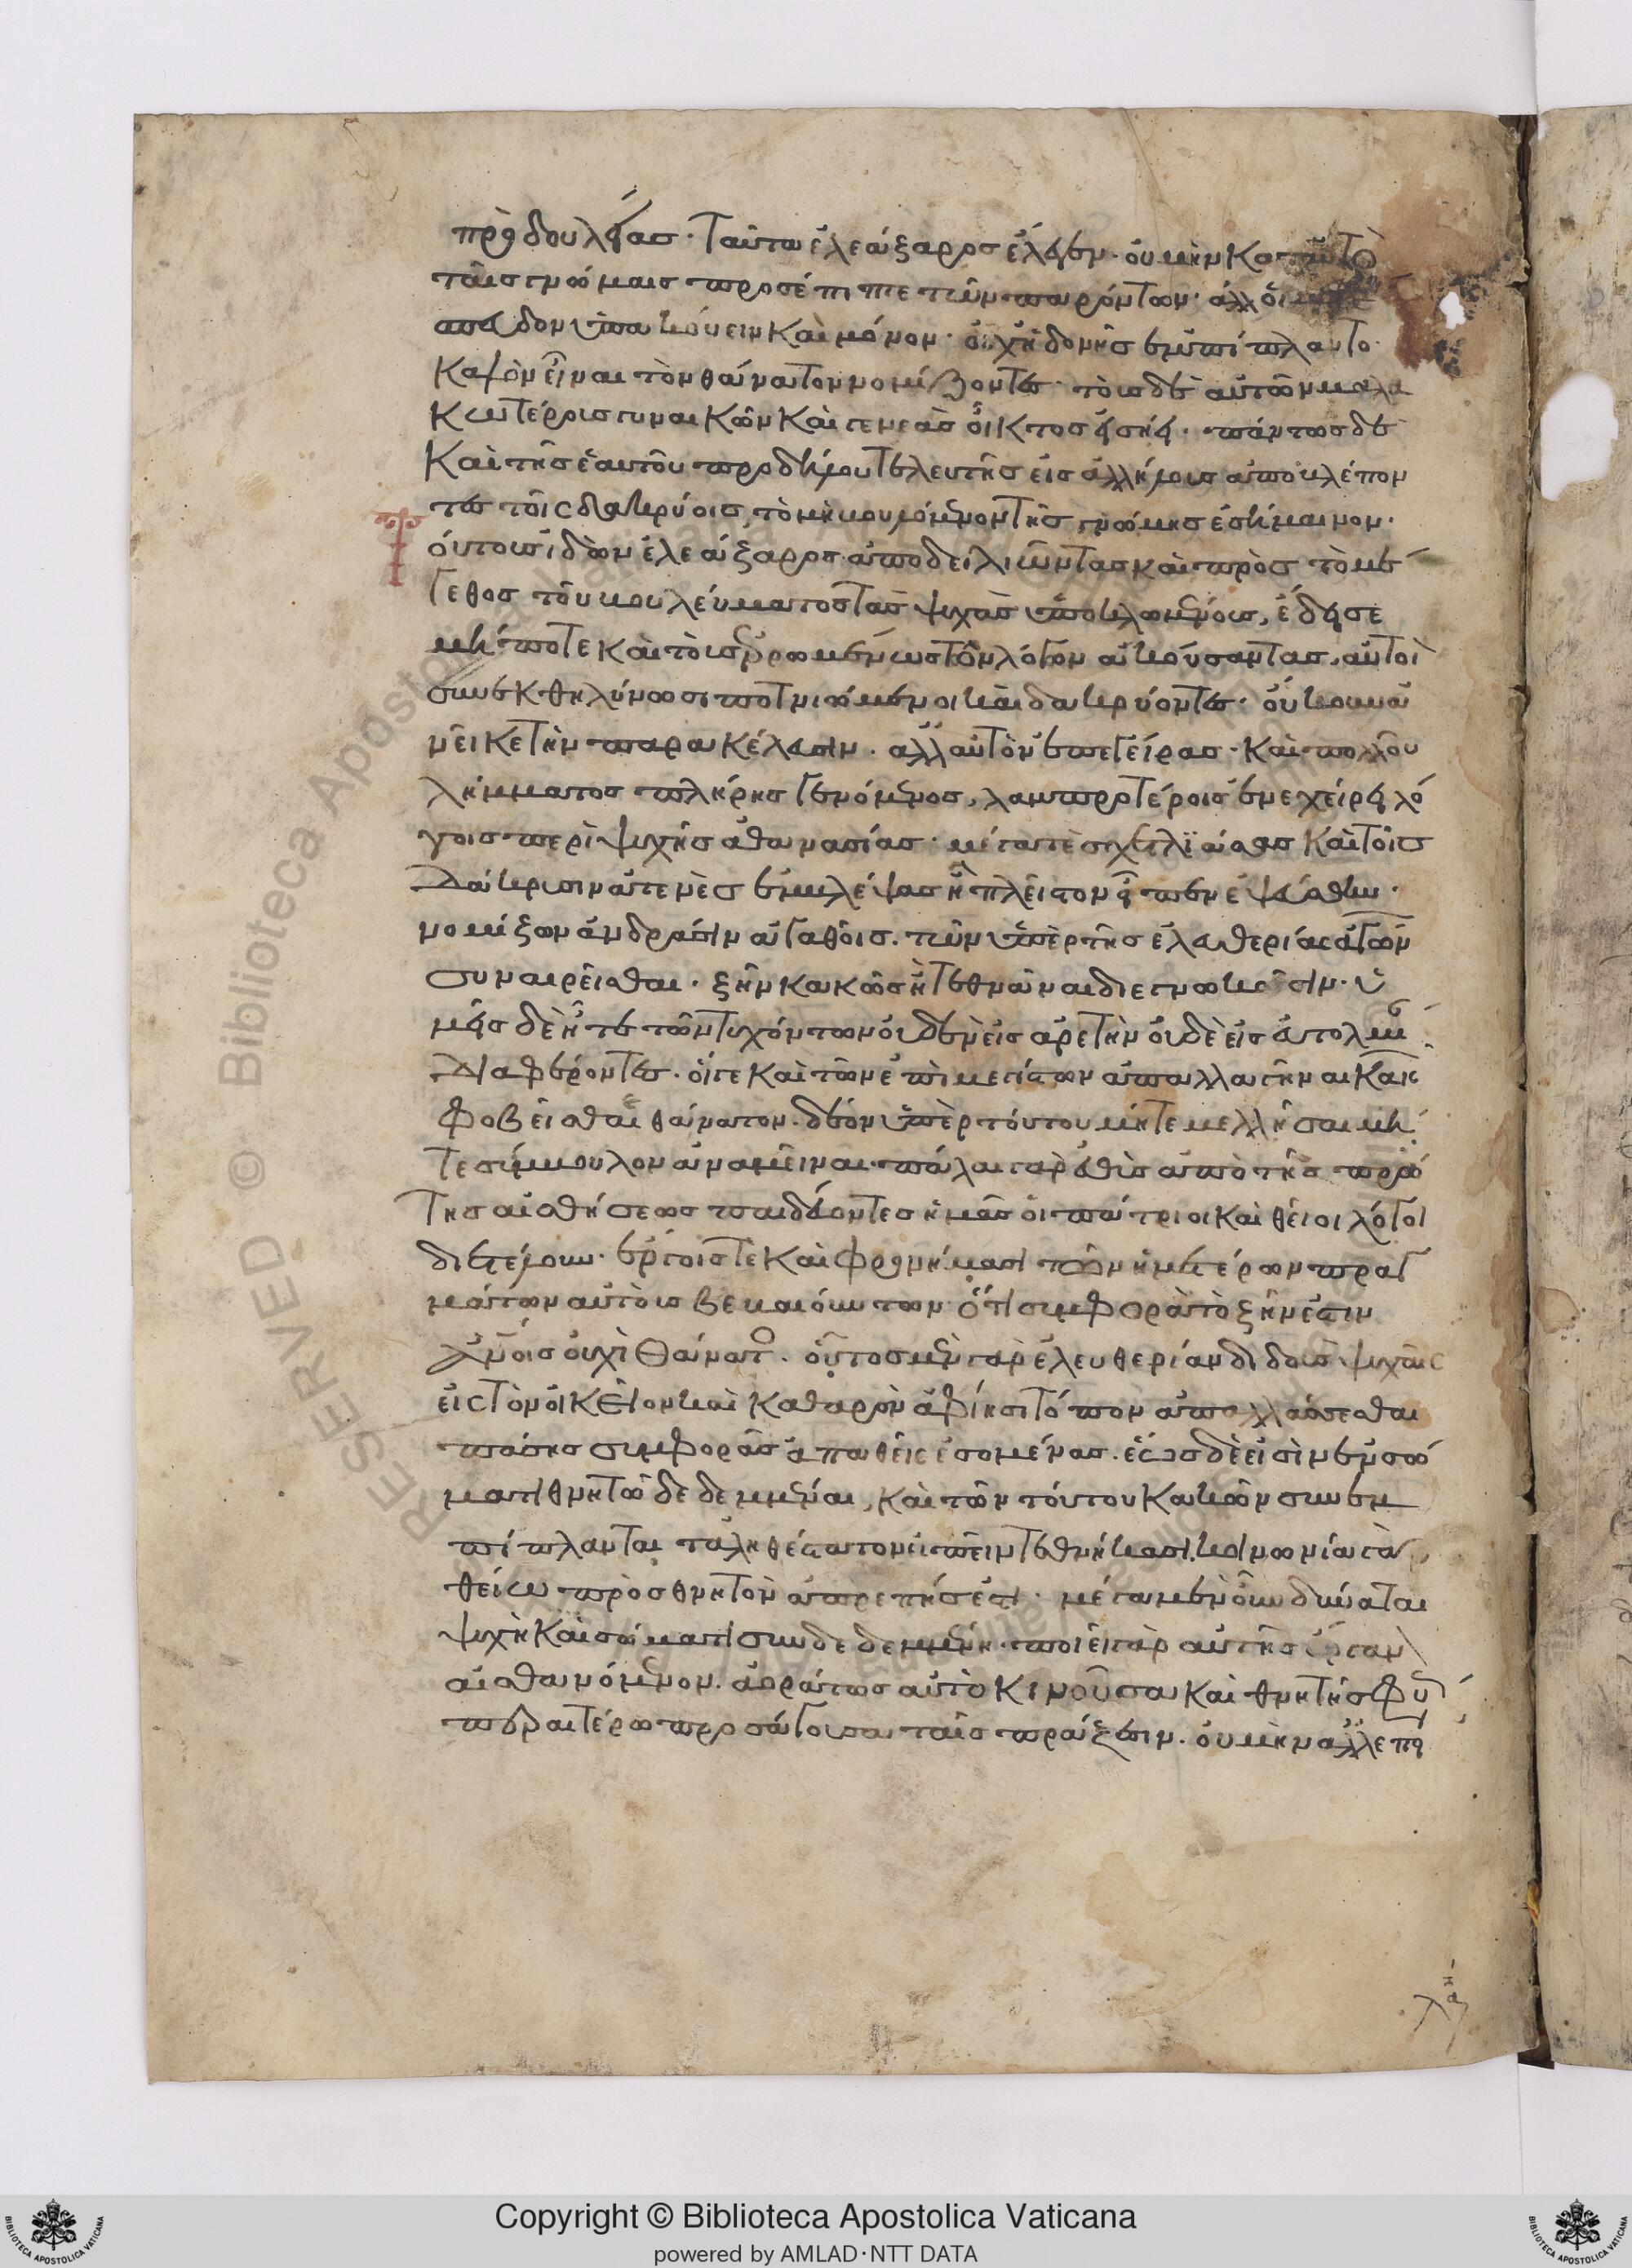 πρὸ δουλείας. Ταῦτα ἐλεάζαρος ἔλεγεν. οὐ μὴν κατ αὐτὸ
ταῖς γνώμαις προσέπιπτε τῶν παρόντων. ἀλλ οἱ μὲν
δον ὑπακούειν καὶ μόνον. οὐχ ἡδονῆς ἐνεπίπλαντο.
καλὸν εἶναι τὸν θάνατον νομίζοντες. τοὺς δὲ αὐτῶν μαλα
κωτέρους γυναικῶν καὶ γενεᾶς οἶκτος εἰσήει. πάντως δὲ
καὶ τῆς ἑαυτοῦ προδήλου τελευτῆς εἰς ἀλλήλους ἀποβλέπον
τες τοῖς δακρύοις, τὸ μὴ βουλόμενον τῆς γνώμης ἐσήμαινον.
Τούτους ἰδὼν ἐλεάζαρος ἀποδειλιῶντας καὶ πρὸς τὸ μέ
γεθος τοῦ βουλεύματος τὰς ψυχὰς ὑποκλωμένους, ἔδεισε
μήποτε καὶ τοὺς ἐρρωμένως τῶν λόγων ἀκούσαντας, αὐτοὶ
συνεκθηλύνωσι ποτνιώμενοι καὶ δακρύοντες. οὔκουν ἀ
νεῖκε τὴν παρακέλευσιν. ἀλλ αὐτὸν ἐπεγείρας. καὶ πολλοῦ
λήμματος πλήρης γενόμενος, λαμπροτέροις ἐνεχείρει λό
γοις περὶ ψυχῆς ἀθανασίας. μέγα τὲ σχετλϊάσας καὶ τοῖς
δάκρυσιν ἀτενὲς ἐμβλέψας ἦ πλεῖστον εἶπεν ἐψεύσθην.
νομίζων ἀνδράσιν ἀγαθοῖς. τῶν ὑπὲρ τῆς ἐλευθερίας ἀγώνων
συναιρεῖσθαι. ζῆν κακῶς ἢ τεθνᾶναι διεγνωκόσιν. ὑ
μεῖς δὲ ἦτε τῶν τυχόντων οὐδὲν εἰς ἀρετὴν οὐδὲ εἰς εὐτολμ
διαφέροντες. οἵγε καὶ τῶν ἐπὶ μεγίστων ἀπαλλαγῆναι κακ
φοβεῖσθαι θάνατον. δέον ὑπὲρ τούτου μήτε μελλῆσαι μή
τε σύμβουλον ἀναμεῖναι. πάλαι γὰρ εὐθὺς ἀπὸ τῆς πρώ
της αἰσθήσεως παιδεύοντες ἡμᾶς οἱ πάτριοι καὶ θεῖοι λόγοι
διετέλουν. ἔργοις τὲ καὶ φρονήμασι τῶν ἡμετέρων πραγ
μάτων αὐτοὺς βεβαιούντων. ὅτι συμφορὰ τὸ ζῆν ἐστιν
ἀνοις οὐχὶ θάνατος. οὗτος μὲν γὰρ ἐλευθερίαν διδοὺς ψυχαῖς
εἰς τὸν οἰκεῖον καὶ καθαρὸν ἀφίησι τόπον ἀπαλλάσσεσθαι
πάσης συμφορᾶς ἀπαθεῖς ἐσομένας. ἕως δὲ εἰσὶν ἐν σώ
ματι θνητῶ δεδεμέναι, καὶ τῶν τούτου κακῶν συνεμ
πίπλανται τἀληθέστατον εἰπεῖν τεθνήκασι. κοινωνία γὰρ
θείω πρὸς θνητὸν ἀπρεπής ἐστι. μέγα μὲν οὖν δύναται
ψυχὴ καὶ σώματι συνδεδεμένη. ποιεῖ γὰρ αὐτῆς ὄργανον
αἰσθανόμενον. ἀοράτως αὐτὸ κινοῦσα καὶ θνητῆς φύ
περαιτέρω προσάγουσα ταῖς πράξεσιν. οὐ μὴν ἀλλ επει